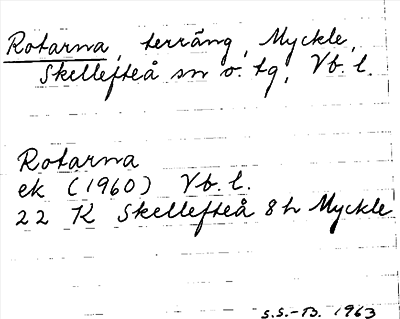 Rotarna, terräng, Myckle,
Skellefteå sn o. tg, Vb. l.
Rotarna
ek (1960) Vb. l.
22 K Skellefteå 8h Myckle
S.S.-B. 1963